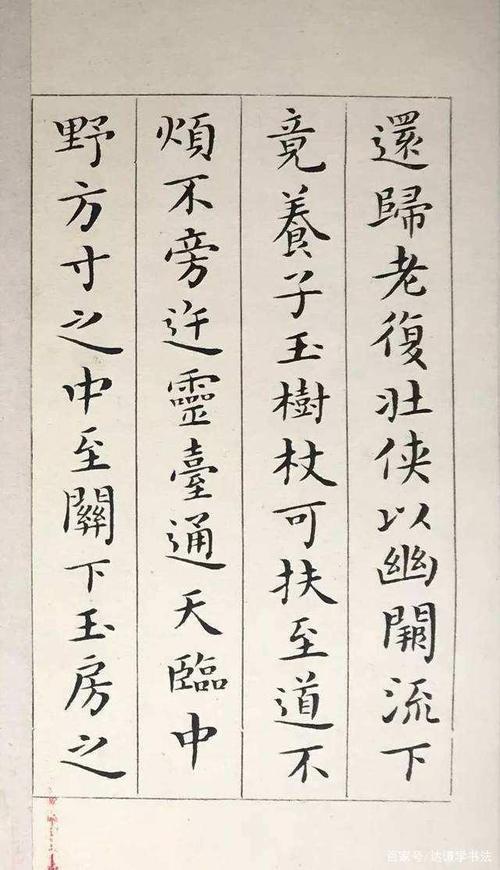 還歸老復壯侠以幽闕流下
竟養子玉樹杖可扶至道不
煩不旁迕靈臺通天臨中
野方寸之中至關下玉房之
百家号/达谦学书法